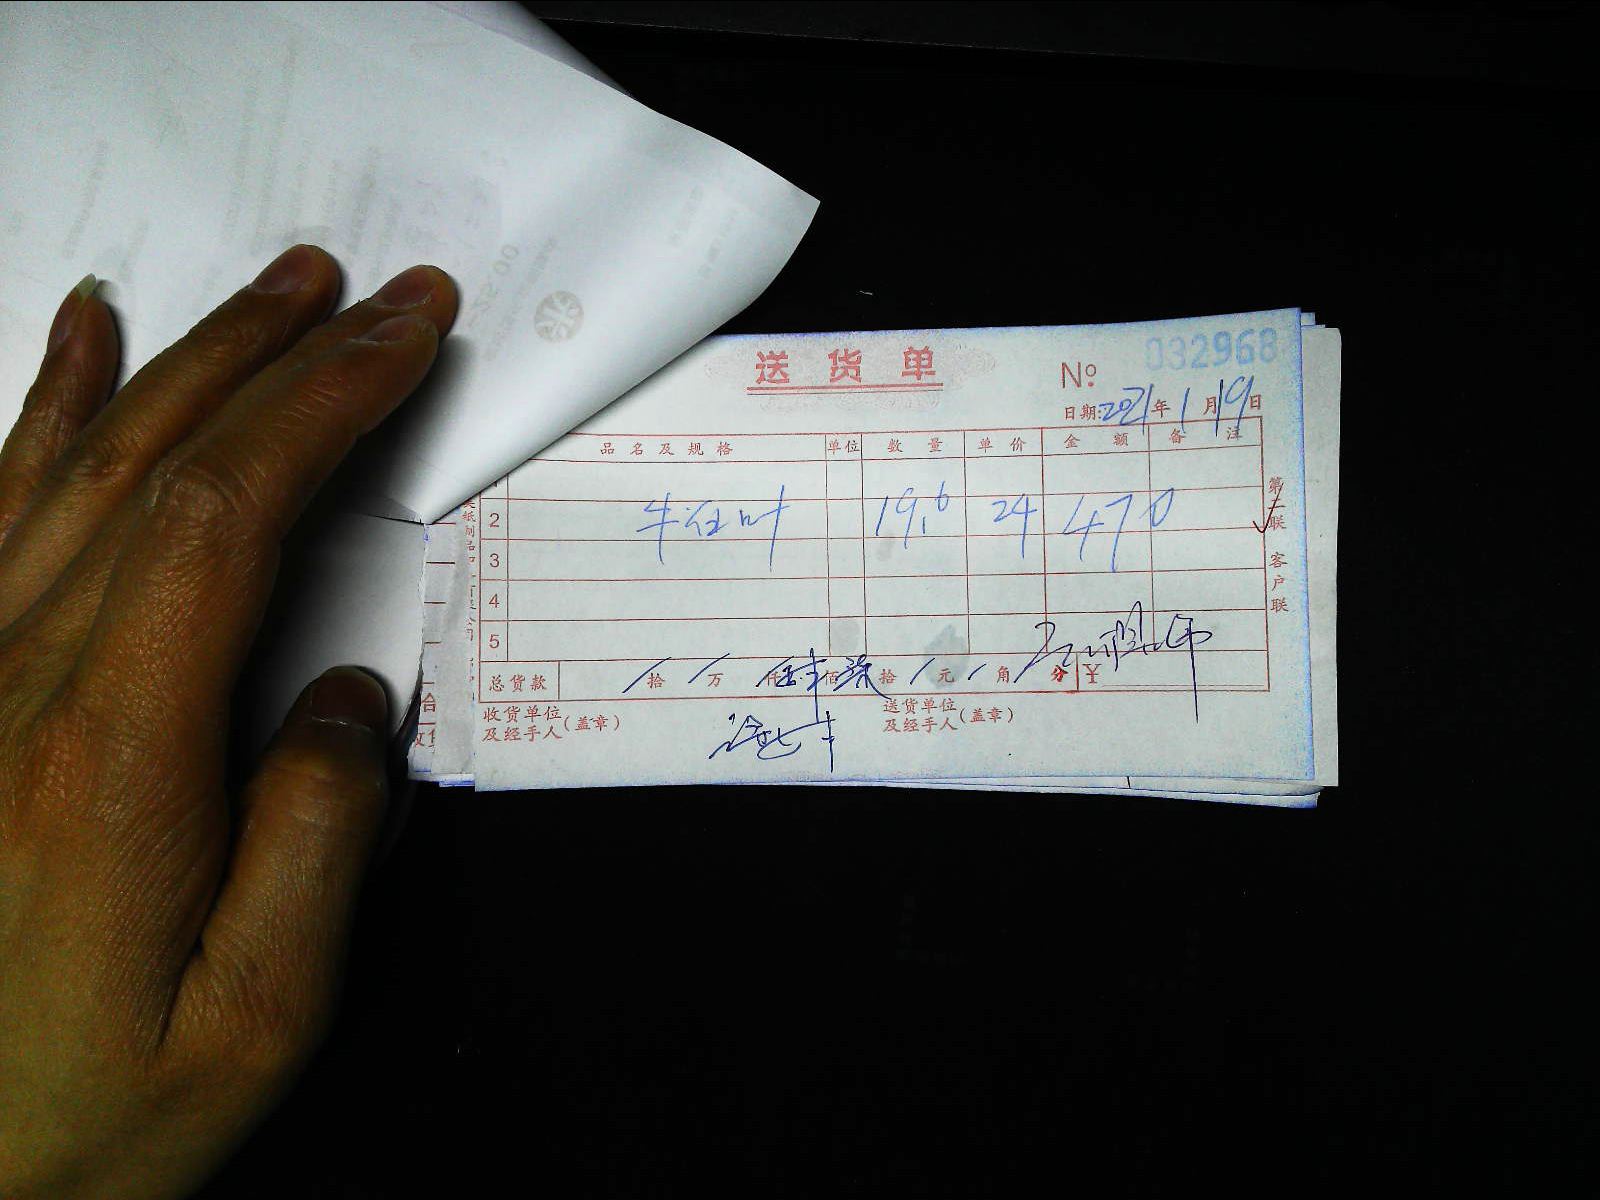 送货单
№ 032968
日期: 2021年1月19日
品名及规格 单位 数量 单价 金额 备注
2 牛百叶 19.6 24 470
3
4
5
总货款 / 拾 / 万 仟 佰 柒 拾 / 元 / 角 / 分 ¥
收货单位及经手人(盖章)
送货单位及经手人(盖章)
第 联 客户联